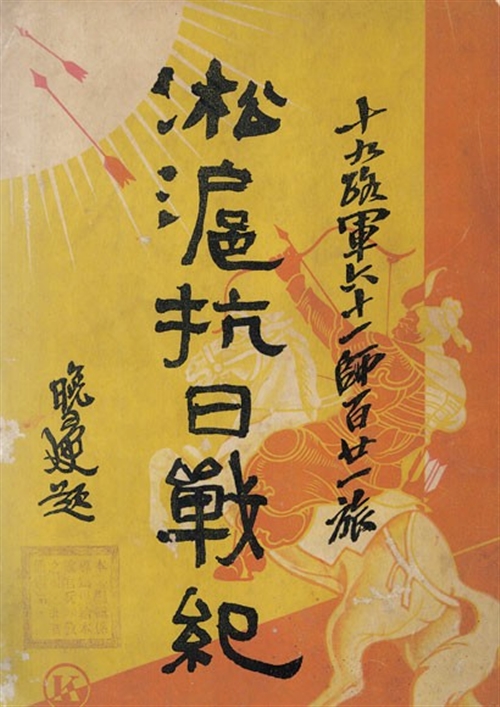 十九路軍六十一師百廿一旅
淞滬抗日戰紀
晚邨題
K